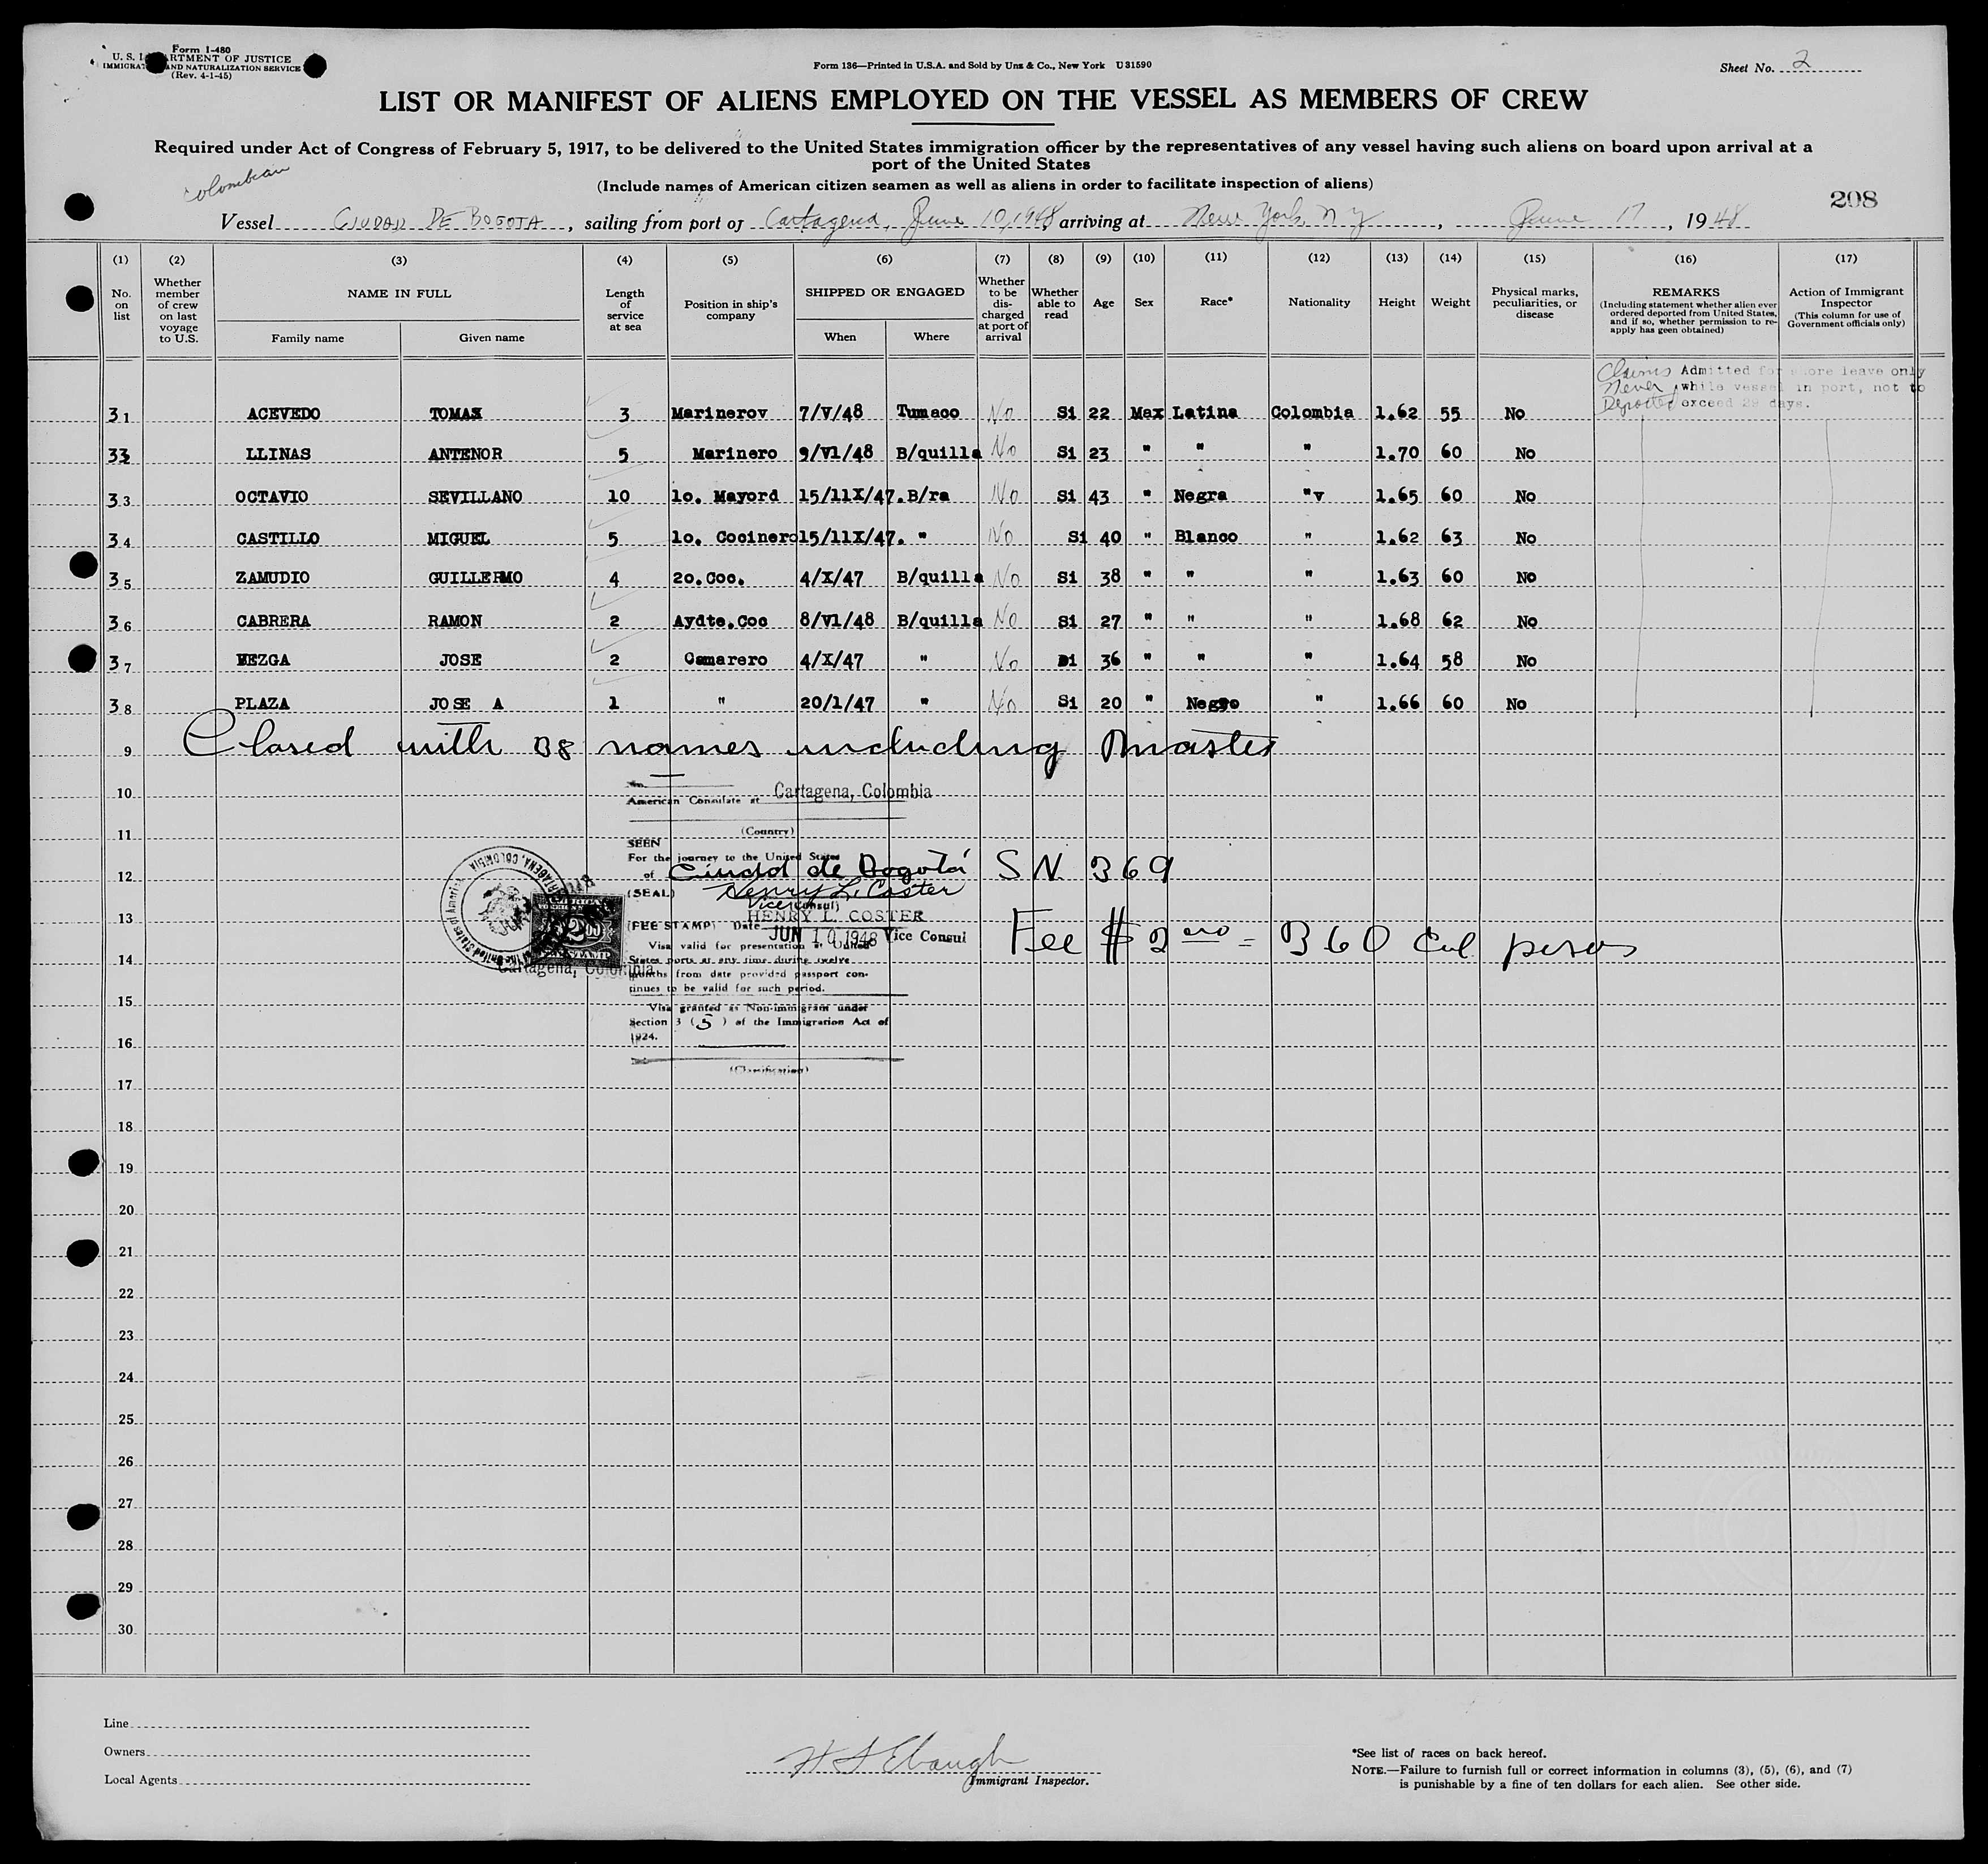 Form 1-480
U. S. DEPARTMENT OF JUSTICE
IMMIGRATION AND NATURALIZATION SERVICE
(Rev. 4-1-45)
Form 136—Printed in U.S.A. and Sold by Unz & Co., New York U31590
Sheet No. 2
LIST OR MANIFEST OF ALIENS EMPLOYED ON THE VESSEL AS MEMBERS OF CREW
Required under Act of Congress of February 5, 1917, to be delivered to the United States immigration officer by the representatives of any vessel having such aliens on board upon arrival at a
port of the United States
Colombian
(Include names of American citizen seamen as well as aliens in order to facilitate inspection of aliens)
208
Vessel CIUDAD DE BOGOTA, sailing from port of Cartagena, June 10, 1948 arriving at New York, N Y, June 17, 1948
(1) (2) (3) (4) (5) (6) (7) (8) (9) (10) (11) (12) (13) (14) (15) (16) (17)
No. on list
Whether member of crew on last voyage to U.S.
NAME IN FULL
Family name Given name
Length of service at sea
Position in ship's company
SHIPPED OR ENGAGED
When Where
Whether to be discharged at port of arrival
Whether able to read
Age
Sex
Race*
Nationality
Height
Weight
Physical marks, peculiarities, or disease
REMARKS
(Including statement whether alien ever ordered deported from United States, and if so, whether permission to re-apply has geen obtained)
Action of Immigrant Inspector
(This column for use of Government officials only)
Claims Never Deported
Admitted for shore leave only
while vessel in port, not to
exceed 29 days.
31 ACEVEDO TOMAS 3 Marinerov 7/V/48 Tumaco No Si 22 Max Latina Colombia 1.62 55 No
33 LLINAS ANTENOR 5 Marinero 9/V1/48 B/quilla No Si 23 " " " 1.70 60 No
33 OCTAVIO SEVILLANO 10 1o. Mayord 15/11X/47. B/ra No Si 43 " Negra "v 1.65 60 No
34 CASTILLO MIGUEL 5 1o. Cocinero 15/11X/47. " No Si 40 " Blanco " 1.62 63 No
35 ZAMUDIO GUILLERMO 4 2o.Coc. 4/X/47 B/quilla No Si 38 " " " 1.63 60 No
36 CABRERA RAMON 2 Aydte.Coc 8/V1/48 B/quilla No Si 27 " " " 1.68 62 No
37 MEZGA JOSE 2 Camarero 4/X/47 " No Di 36 " " " 1.64 58 No
38 PLAZA JOSE A 1 " 20/1/47 " No Si 20 " Negro " 1.66 60 No
9 Closed with 38 names including Master
10
American Consulate at Cartagena, Colombia
11
(Country)
SEEN
For the journey to the United States
12 of Ciudad de Bogotá S N 369
(SEAL) Henry L. Coster
Vice Consul)
13 HENRY L. COSTER
(FEE STAMP) Date JUN 10 1948 Vice Consul
Fee $2 00 = 360 Col pesos
Visa valid for presentation at United
14 States ports at any time during twelve
Cartagena, Colombia
months from date provided passport con-
tinues to be valid for such period.
15
Visa granted as Non-immigrant under
Section 3 (5) of the Immigration Act of
1924.
16
(Classification)
17
18
19
20
21
22
23
24
25
26
27
28
29
30
Line
Owners
Local Agents
H S Ebaugh
Immigrant Inspector.
*See list of races on back hereof.
NOTE.—Failure to furnish full or correct information in columns (3), (5), (6), and (7)
is punishable by a fine of ten dollars for each alien. See other side.